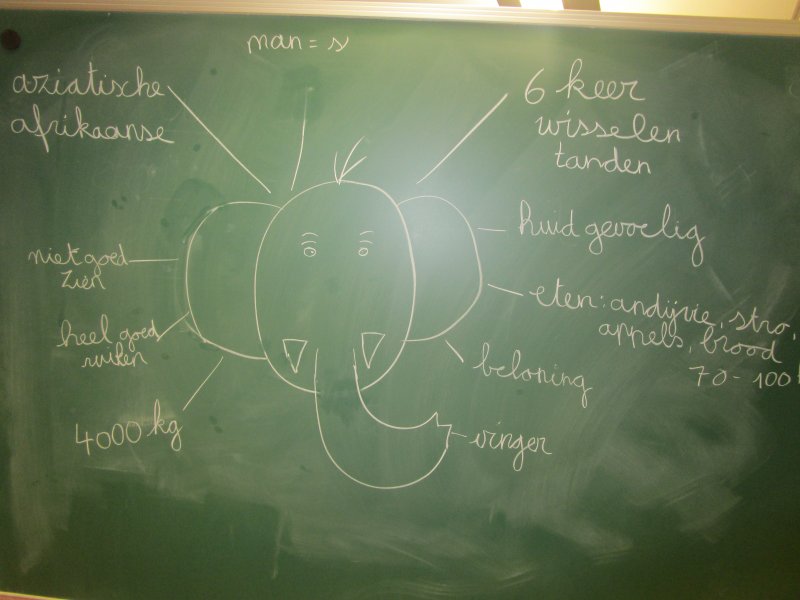 man = s
aziatische
afrikaanse
6 keer
wisselen
tanden
niet goed
zien
huid gevoelig
heel goed
ruiken
eten: andijvie, stro,
appels, brood
70 - 100
beloning
4000 kg
vinger